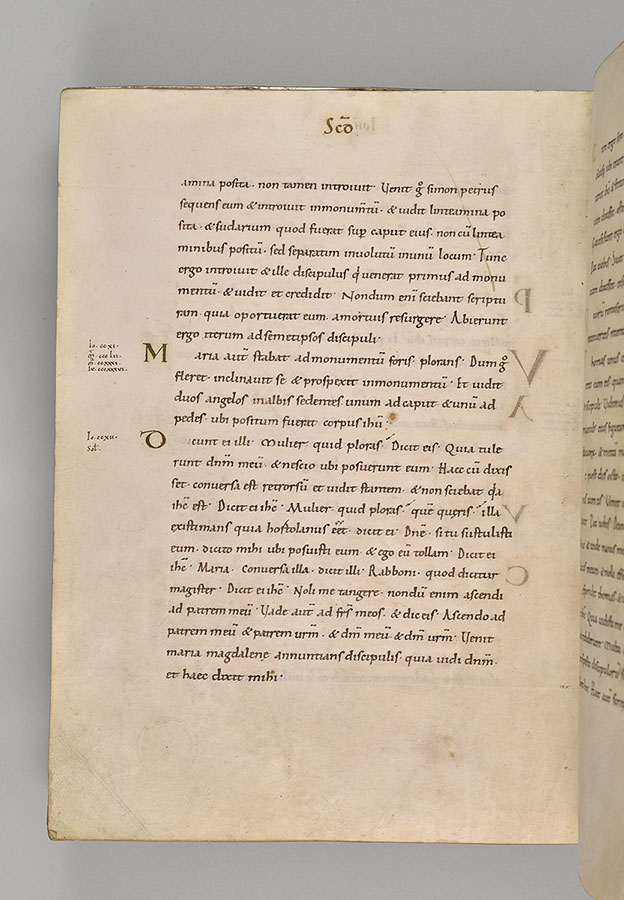 Scđo
amina posita · non tamen introiuit · Uenit g̊ simon petrus
sequens eum & introiuit inmonumtū · & uidit linteamina po
sita · & sudarium quod fuerat sup caput eius · non cū lintea
minibus positū · sed separatim inuolutū inunū locum · Tunc
ergo introiuit & ille discipulus q' uenerat primus ad monu
mentū · & uidit et credidit · Nondum enī sciebant scriptu
ram · quia oportuerat eum · amortuis resurgere · Abierunt
ergo iterum ad semetipsos discipuli
Maria autē stabat admonumentū foris plorans · Dum g̊
fleret · inclinauit se & prospexit inmonumentū · Et uidit
duos angelos inalbis sedentes unum adcaput & unū ad
pedes · ubi positum fuerat corpus ihū ·
Dicunt ei illi · Mulier quid ploras · Dicit eis · Quia tule
runt dnm meū · & nescio ubi posuerunt eum · Haec cū dixis
set · conuersa est retrorsū et uidit stantem · & non sciebat q̄a
ihc est · Dicit ei ihc · Mulier · quid ploras · quē queris · illa
existimans quia hortolanus eēt · dicit ei · Dne · si tu sustulisti
eum · dicito mihi ubi posuisti eum · & ego eū tollam · Dicit ei
ihc · Maria · Conuersa illa · dicit illi · Rabboni · quod dicitur
magister · Dicit ei ihc · Noli me tangere · nondū enim ascendi
ad patrem meū · Uade autē ad frs meos · & dic eis · Ascendo ad
patrem meū & patrem urm · & dm meū & dm urm · Uenit
maria magdalene annuntians discipulis · quia uidi dnm ·
et haec dixit mihi ·